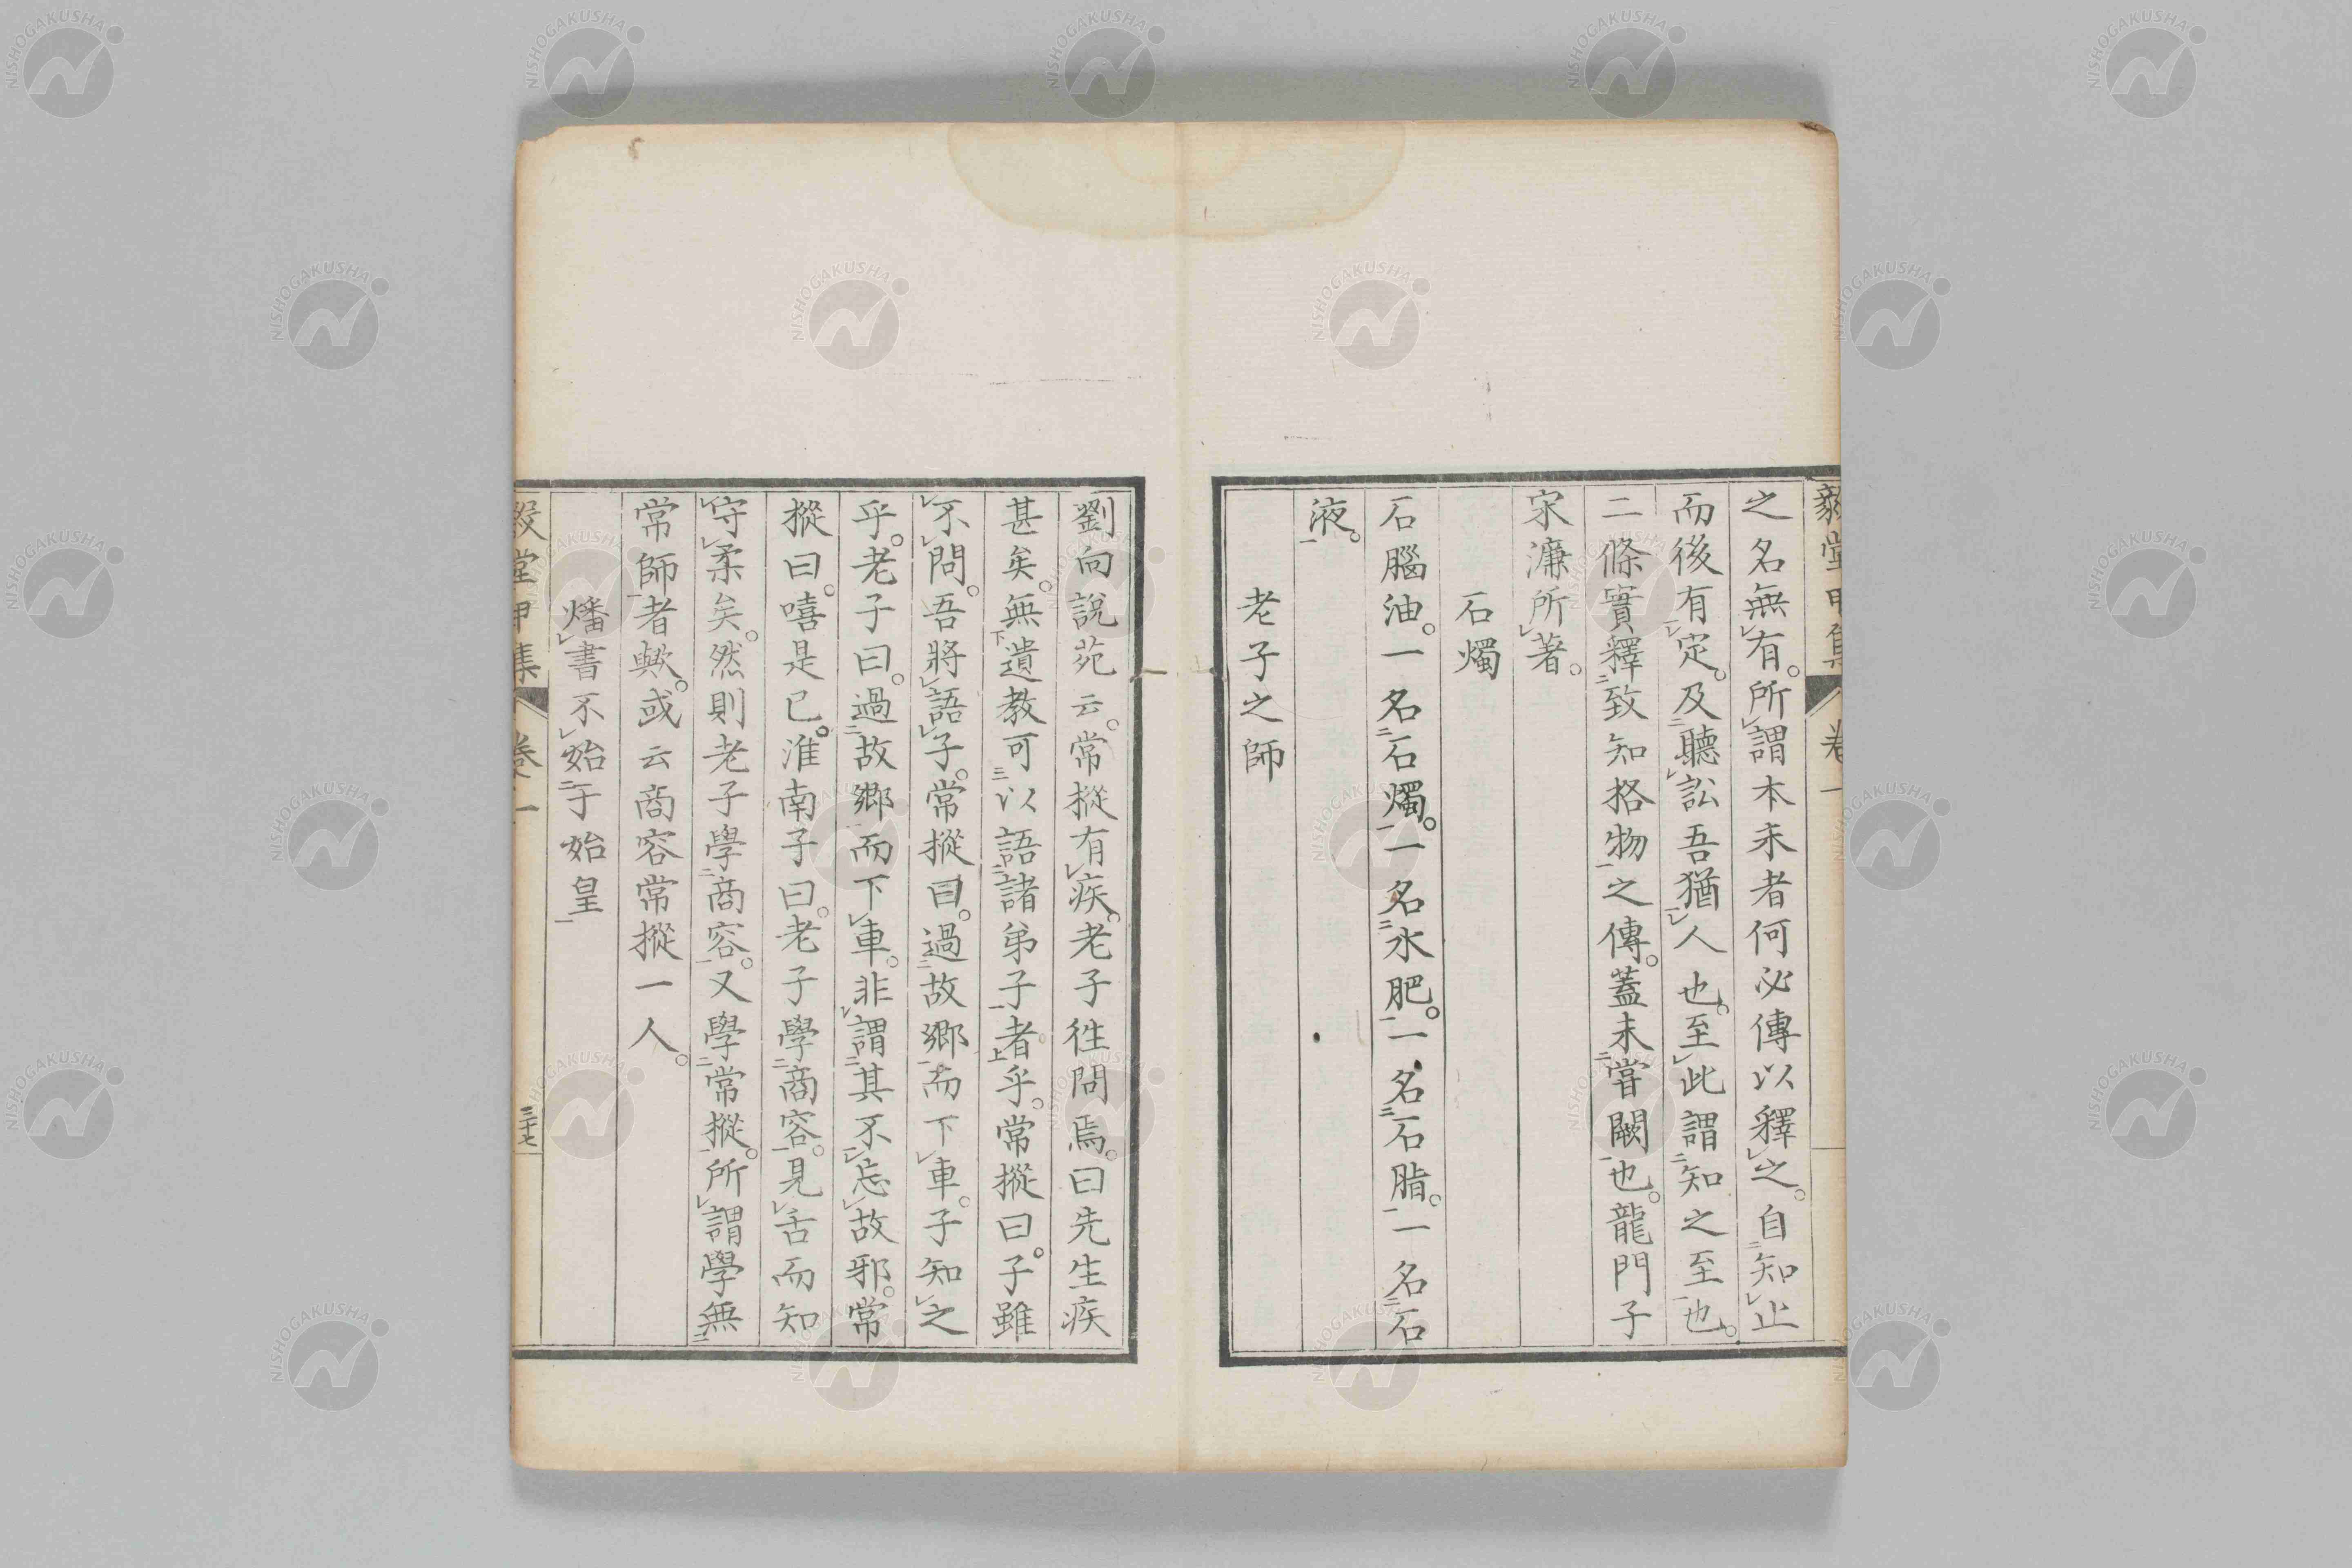 毅堂甲集 卷一
之名無有。所謂本末者何必傳以釋之。自知止
而後有定。及聽訟吾猶人也。至此謂知之至也。
二條實釋致知格物之傳。蓋未嘗闕也。龍門子
宋濂所著。
石燭
石腦油。一名石燭。一名水肥。一名石脂。一名石
液。
老子之師
劉向說苑云。常摐有疾。老子往問焉。曰先生疾
甚矣。無遺教可以語諸弟子者乎。常摐曰。子雖
不問。吾將語子。常摐曰。過故鄉而下車。子知之
乎。老子曰。過故鄉而下車。非謂其不忘故邪。常
摐曰。嘻是已。淮南子曰。老子學商容。見舌而知
守柔矣。然則老子學商容。又學常摐。所謂學無
常師者歟。或云商容常摐一人。
燔書不始于始皇
毅堂甲集 卷一 三十七
NISHOGAKUSHA